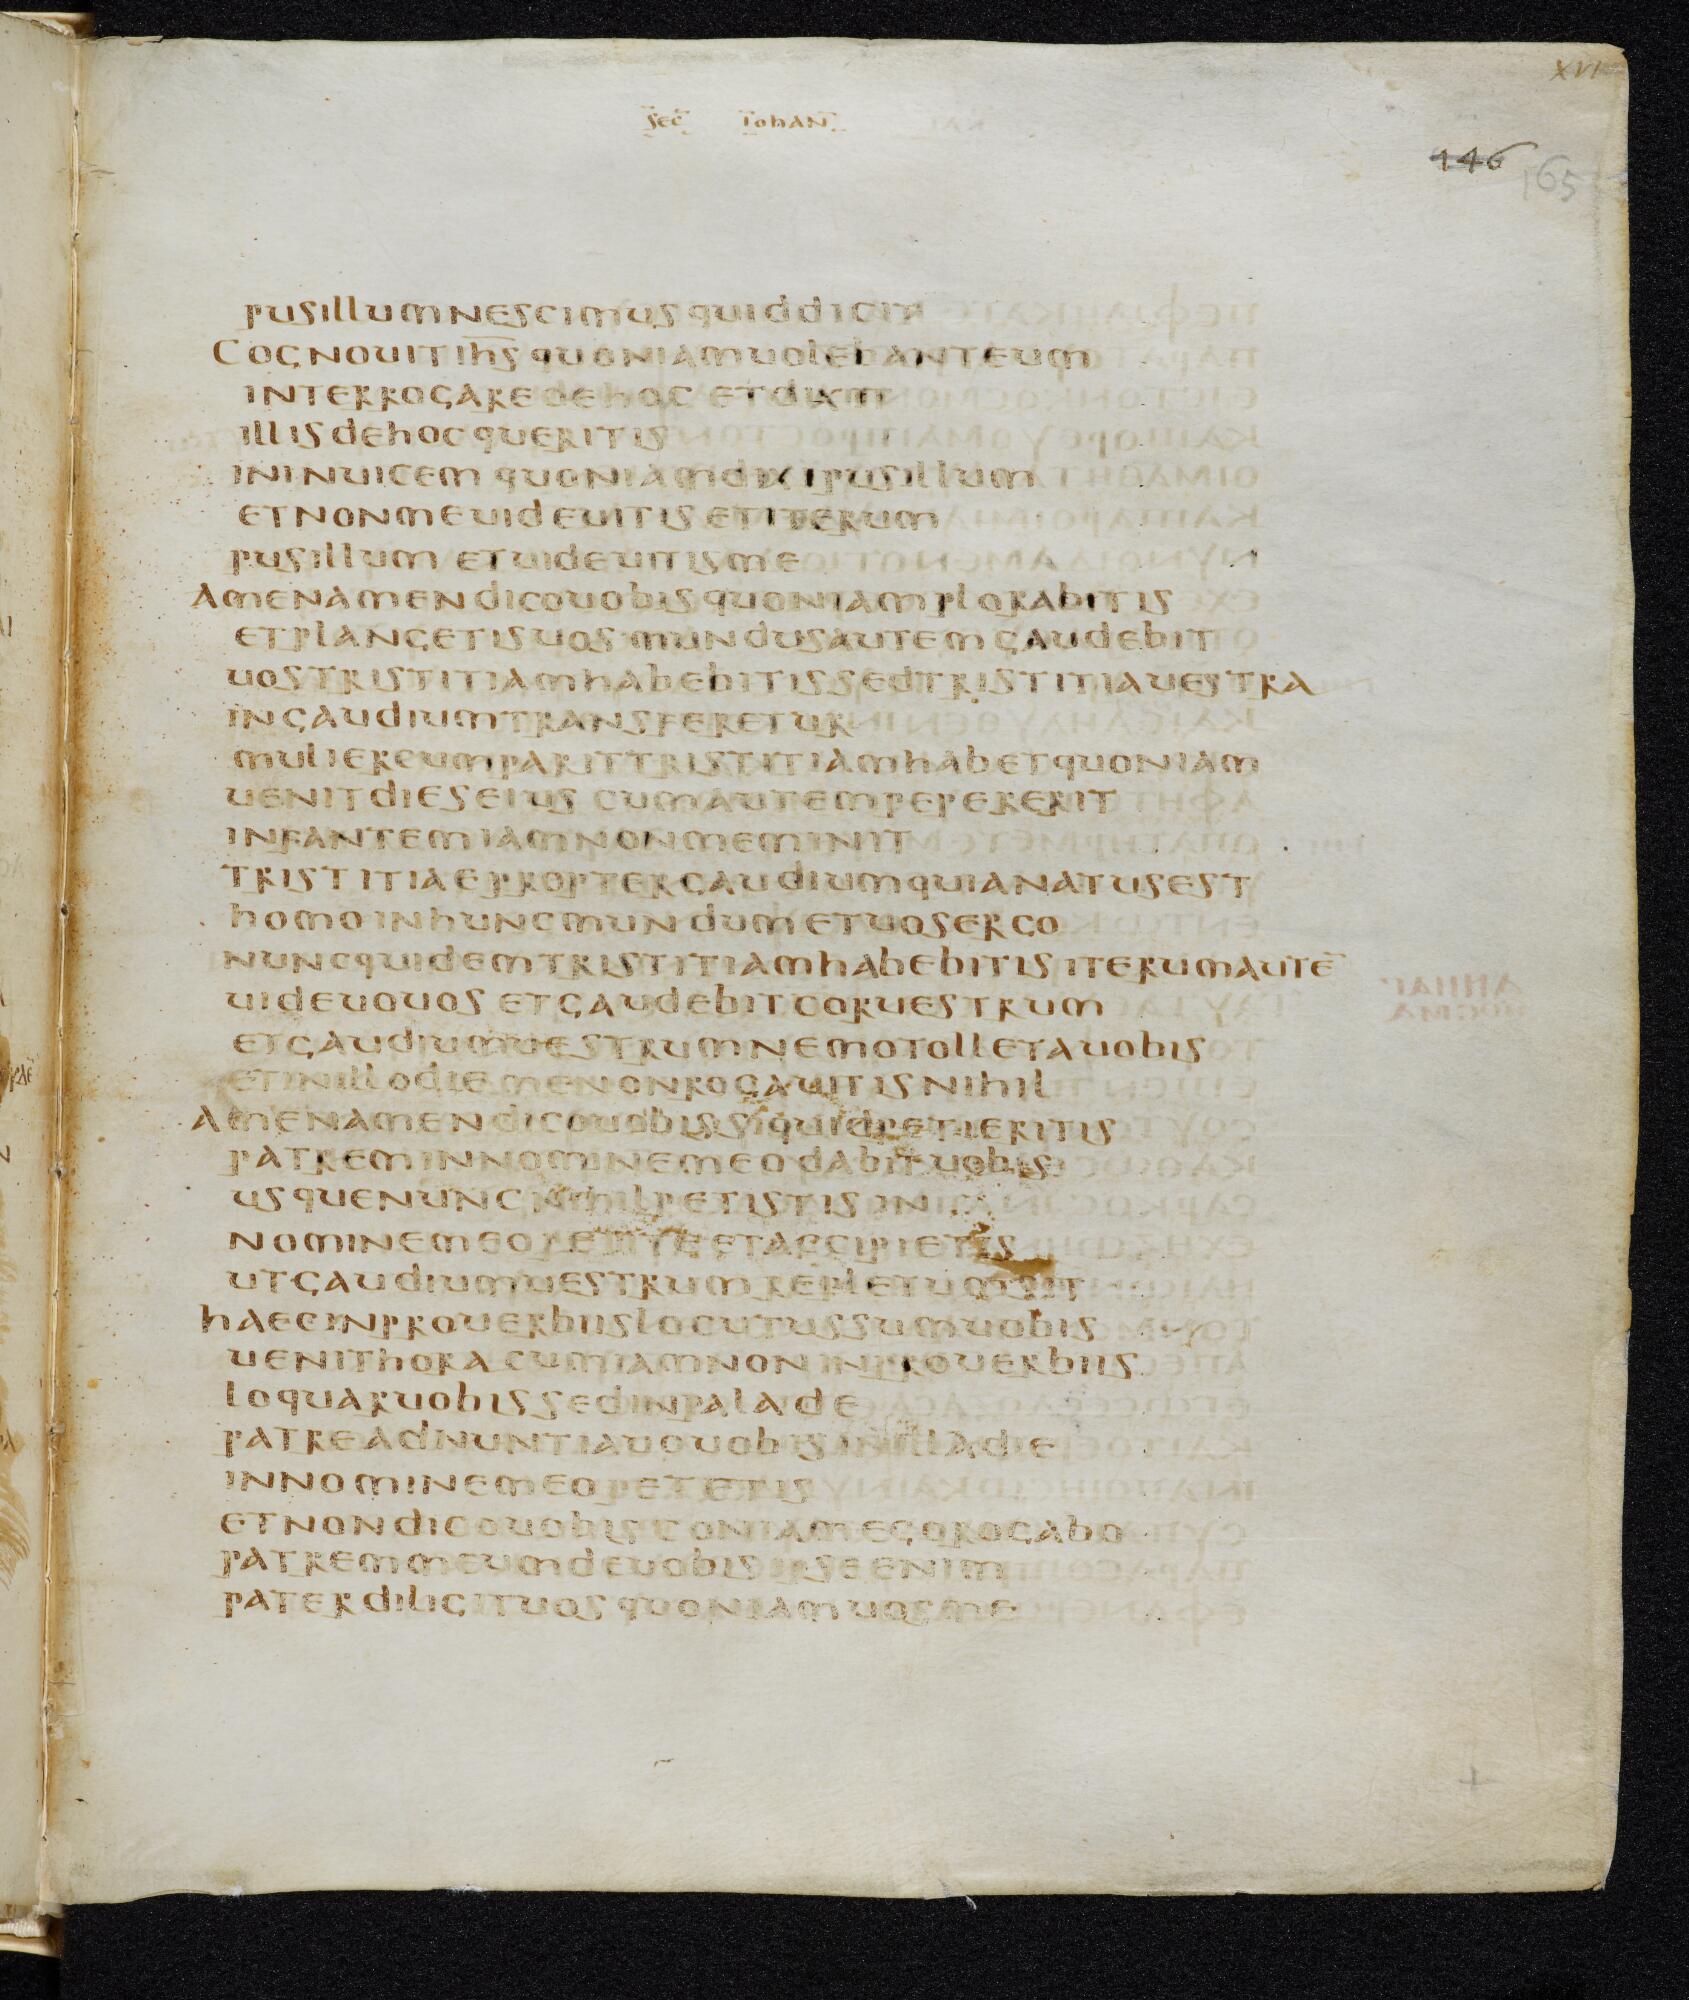 XVI
sec iohan
146
165
pusillum nescimus quid dicit
Cognouit ihs quoniam uolebant eum
interrogare de hoc et dixit
illis de hoc queritis
in inuicem quoniam dixi pusillum
et non me uideuitis et iterum
pusillum et uideuitis me
Amen amen dico uobis quoniam plorabitis
et plangetis uos mundus autem gaudebit
uos tristitiam habebitis sed tristitia uestra
in gaudium transferetur
mulier cum parit tristitiam habet quoniam
uenit dies eius cum autem pepererit
infantem iam non meminit
tristitiae propter gaudium quia natus est
homo in hunc mundum et uos ergo
nunc quidem tristitiam habebitis iterum autē
uideuo uos et gaudebit cor uestrum
et gaudium uestrum nemo tollet a uobis
et in illo die me non rogauitis nihil
Amen amen dico uobis si quid petieritis
patrem in nomine meo dabit uobis
usque nunc nihil petistis in
nomine meo petite et accipietis
ut gaudium uestrum repletum sit
haec in prouerbiis locutus sum uobis
uenit hora cum iam non in prouerbiis
loquar uobis sed in pala de
patre adnuntiauo uobis in illa die
in nomine meo petetis
et non dico uobis quoniam ego rogabo
patrem meum de uobis ipse enim
pater diligit uos quoniam uos me